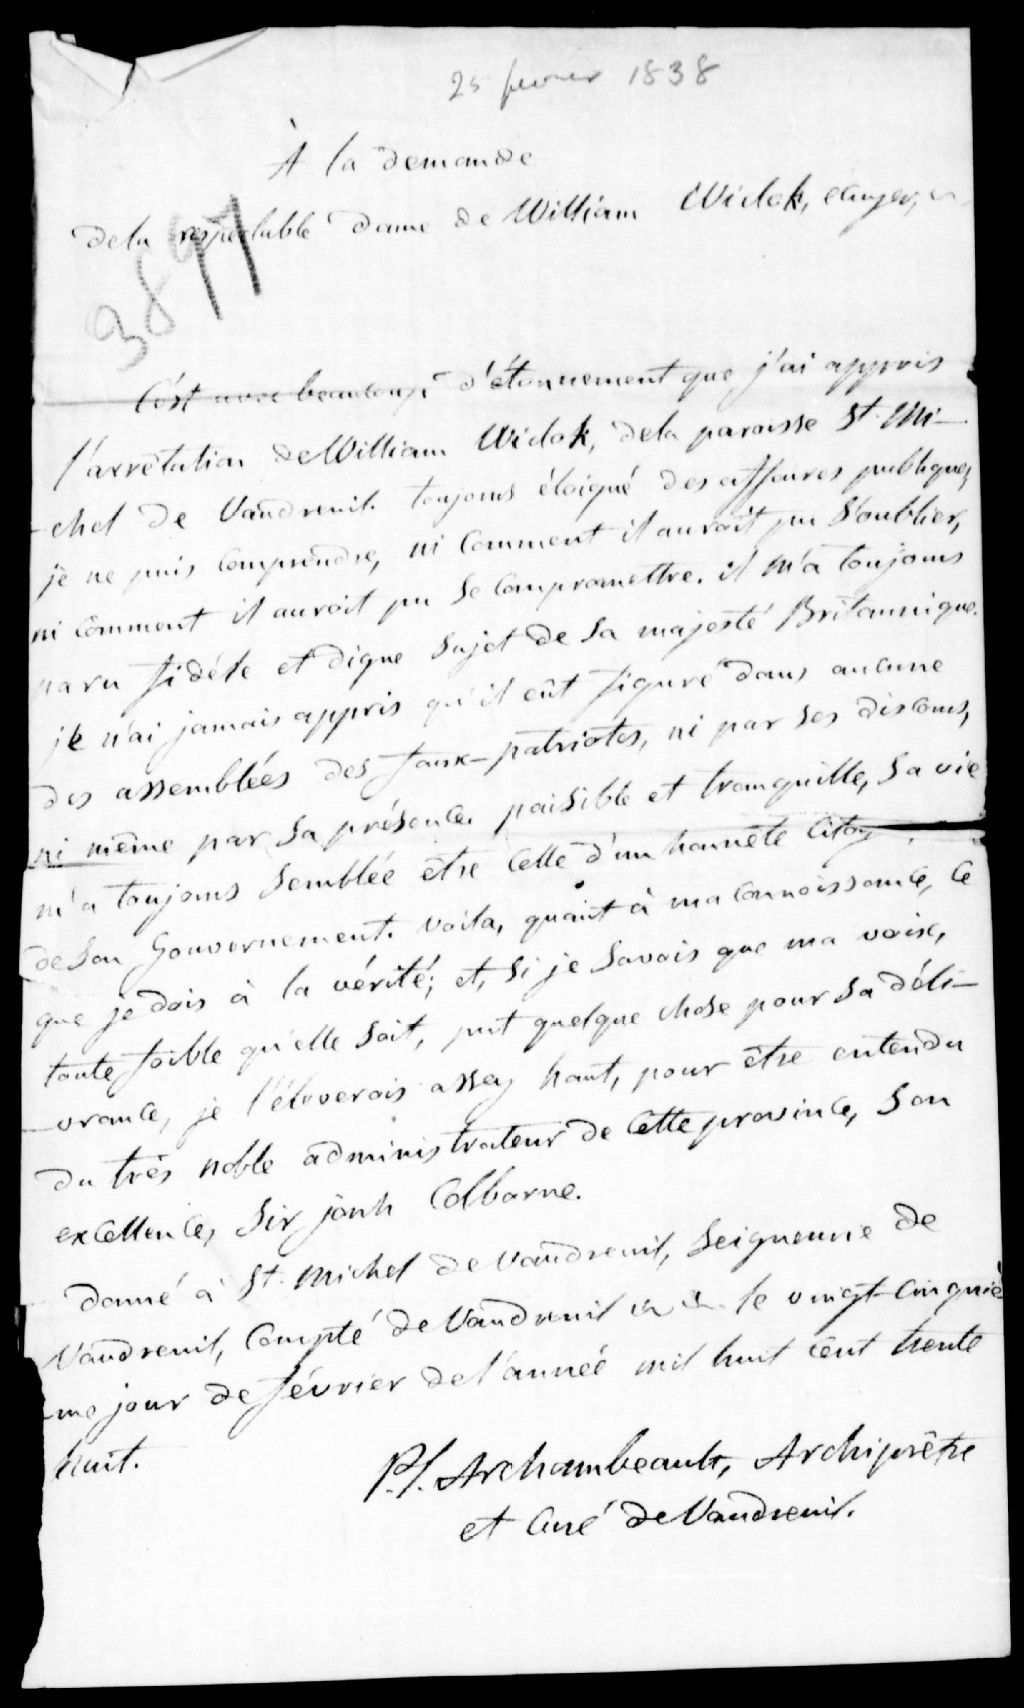 25 fevrier 1838
À la demande
dela respectable dame de William Widok, ecuyer,
3897
C'est avec beaucoup d'étonnement que j'ai appris
l'arrêtation de William Widok, dela paroisse St. Mi-
-chel de Vaudreuil. toujours éloigné des affaires publiques,
je ne puis comprendre, ni comment il auroit pu s'oublier,
ni comment il auroit pu se compromettre. il m'a toujours
paru fidéle et digne sujet de sa majesté Britannique.
je n'ai jamais appris qu'il eût figuré dans aucune
des assemblées des faux-patriotes, ni par ses discours,
ni même par sa présence. paisible et tranquille, sa vie
m'a toujours semblée être celle d'un honnête
de son Gouvernement. voila, quant à ma connoissance, ce
que je dois à la vérité; et, si je savois que ma voix,
toute foible qu'elle soit, put quelque chose pour sa déli-
-vrance, je l'éleverois assez haut, pour être entendu
du très noble administrateur de cette province, son
excellence, Sir jonh Colborne.
donné à St. Michel de vaudreuil, seigneurie de
Vaudreuil, Compté de Vaudreuil le vingt-cinquiè
-me jour de février del'année mil huit cent trente
huit.
P.J. Archambeault, Archiprêtre
et Curé de Vaudreuil.